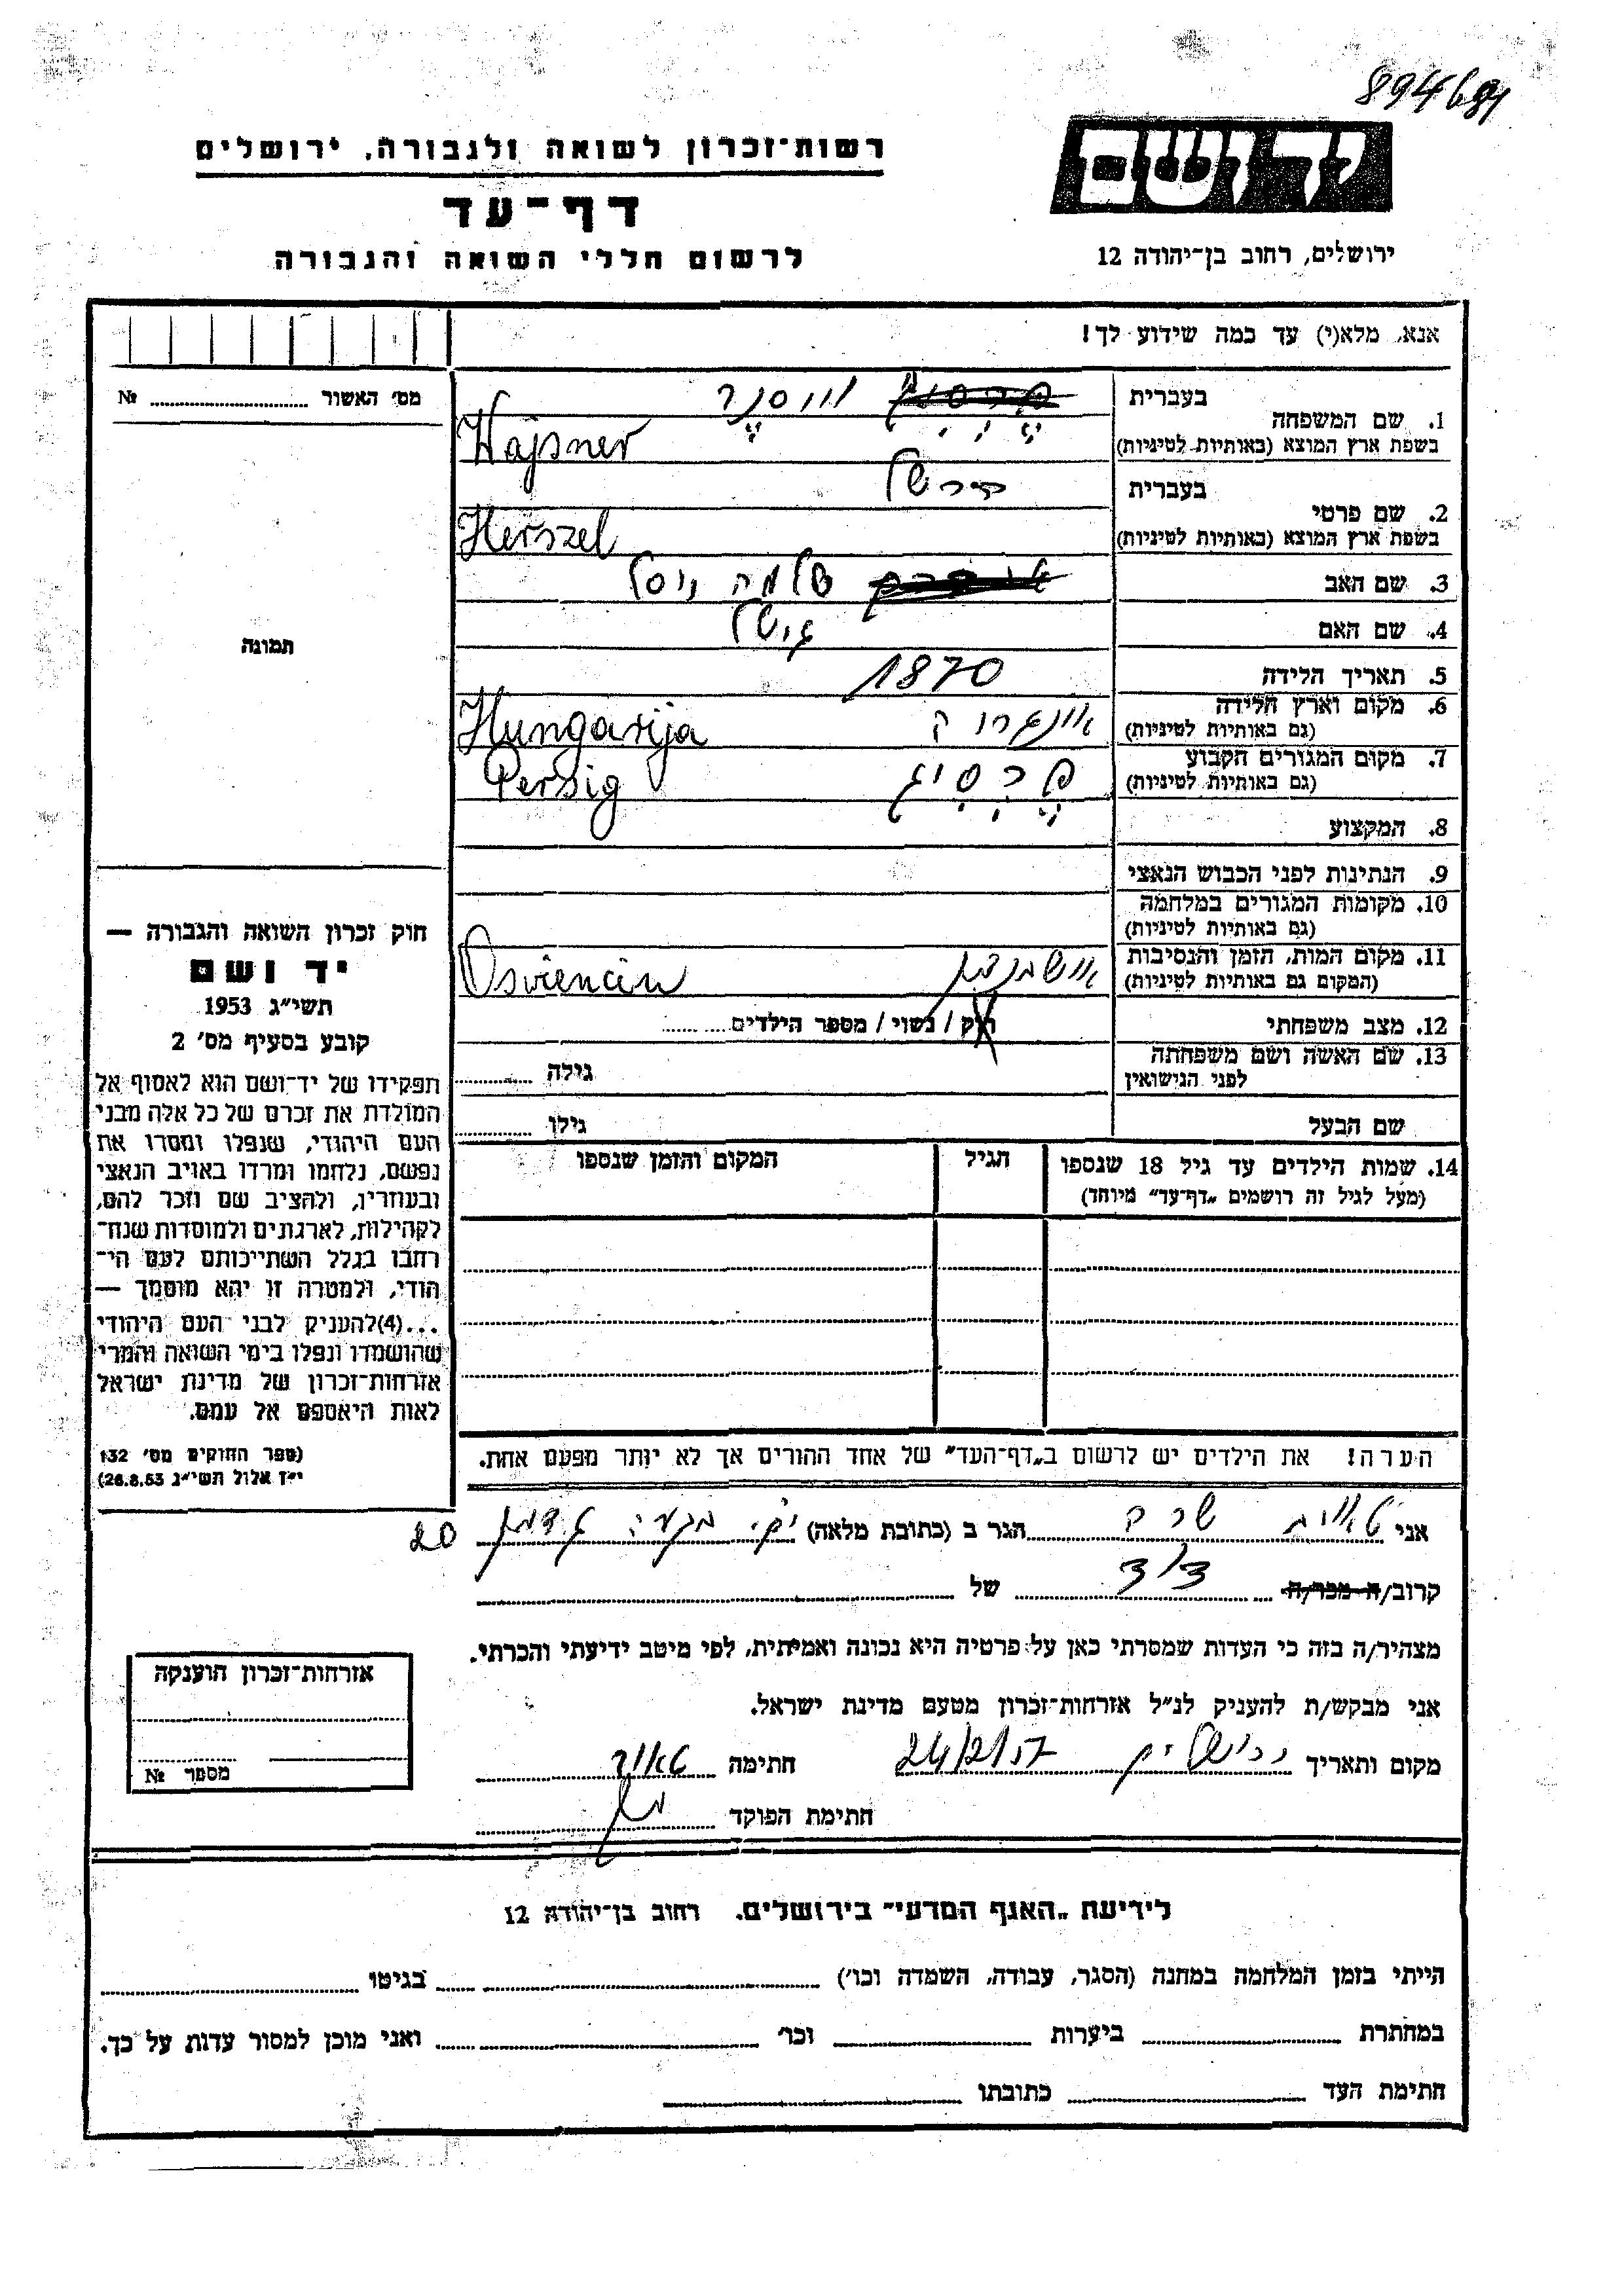 894681
יד ושם
רשות־זכרון לשואה ולגבורה, ירושלים
דף־עד
לרשום חללי השואה והגבורה
ירושלים, רחוב בן־יהודה 12
אנא, מלא(י) עד כמה שידוע לך!
מס' האשור № 
תמונה
1. שם המשפחה
בעברית ווסנר
בשפת ארץ המוצא (באותיות לטיניות) Wajsner
2. שם פרטי
בעברית הרשל
בשפת ארץ המוצא (באותיות לטיניות) Herszel
3. שם האב שלמה
4. שם האם גישל
5. תאריך הלידה 1870
6. מקום וארץ הלידה
(גם באותיות לטיניות) אונגריה Hungarija
7. מקום המגורים הקבוע
(גם באותיות לטיניות) פרסיג Persig
8. המקצוע
9. הנתינות לפני הכבוש הנאצי
10. מקומות המגורים במלחמה
(גם באותיות לטיניות)
11. מקום המות, הזמן והנסיבות
(המקום גם באותיות לטיניות) Oswiencim
12. מצב משפחתי רוק / נשוי / מספר הילדים
13. שם האשה ושם משפחתה
לפני הנישואין גילה
שם הבעל גילו
14. שמות הילדים עד גיל 18 שנספו
(מעל לגיל זה רושמים „דף־עד" מיוחד)
הגיל
המקום והזמן שנספו
הערה! את הילדים יש לרשום ב„דף־העד" של אחד ההורים אך לא יותר מפעם אחת.
חוק זכרון השואה והגבורה —
יד ושם
תשי"ג 1953
קובע בסעיף מס' 2
תפקידו של יד־ושם הוא לאסוף אל
המולדת את זכרם של כל אלה מבני
העם היהודי, שנפלו ומסרו את
נפשם, נלחמו ומרדו באויב הנאצי
ובעוזריו, ולהציב שם וזכר להם,
לקהילות, לארגונים ולמוסדות שנח־
רחבו בגלל השתייכותם לעם הי־
הודי, ולמטרה זו יהא מוסמך —
...(4)להעניק לבני העם היהודי
שהושמדו ונפלו בימי השואה והמרי
אזרחות־זכרון של מדינת ישראל
לאות היאספם אל עמם.
(ספר החוקים מס' 132
י"ז אלול תשי"ג 26.8.53)
אני שרה הגר ב (כתובת מלאה) 20
קרוב/ה מכר/ה של
מצהיר/ה בזה כי העדות שמסרתי כאן על פרטיה היא נכונה ואמיתית, לפי מיטב ידיעתי והכרתי.
אני מבקש/ת להעניק לנ"ל אזרחות־זכרון מטעם מדינת ישראל.
מקום ותאריך ירושלים 24/2/57 חתימה
חתימת הפוקד
אזרחות־זכרון הוענקה
מספר №
לידיעת „האגף המדעי" בירושלים. רחוב בן־יהודה 12
הייתי בזמן המלחמה במחנה (הסגר, עבודה, השמדה וכו') בגיטו
במחתרת ביערות וכו' ואני מוכן למסור עדות על כך.
חתימת העד כתובתו